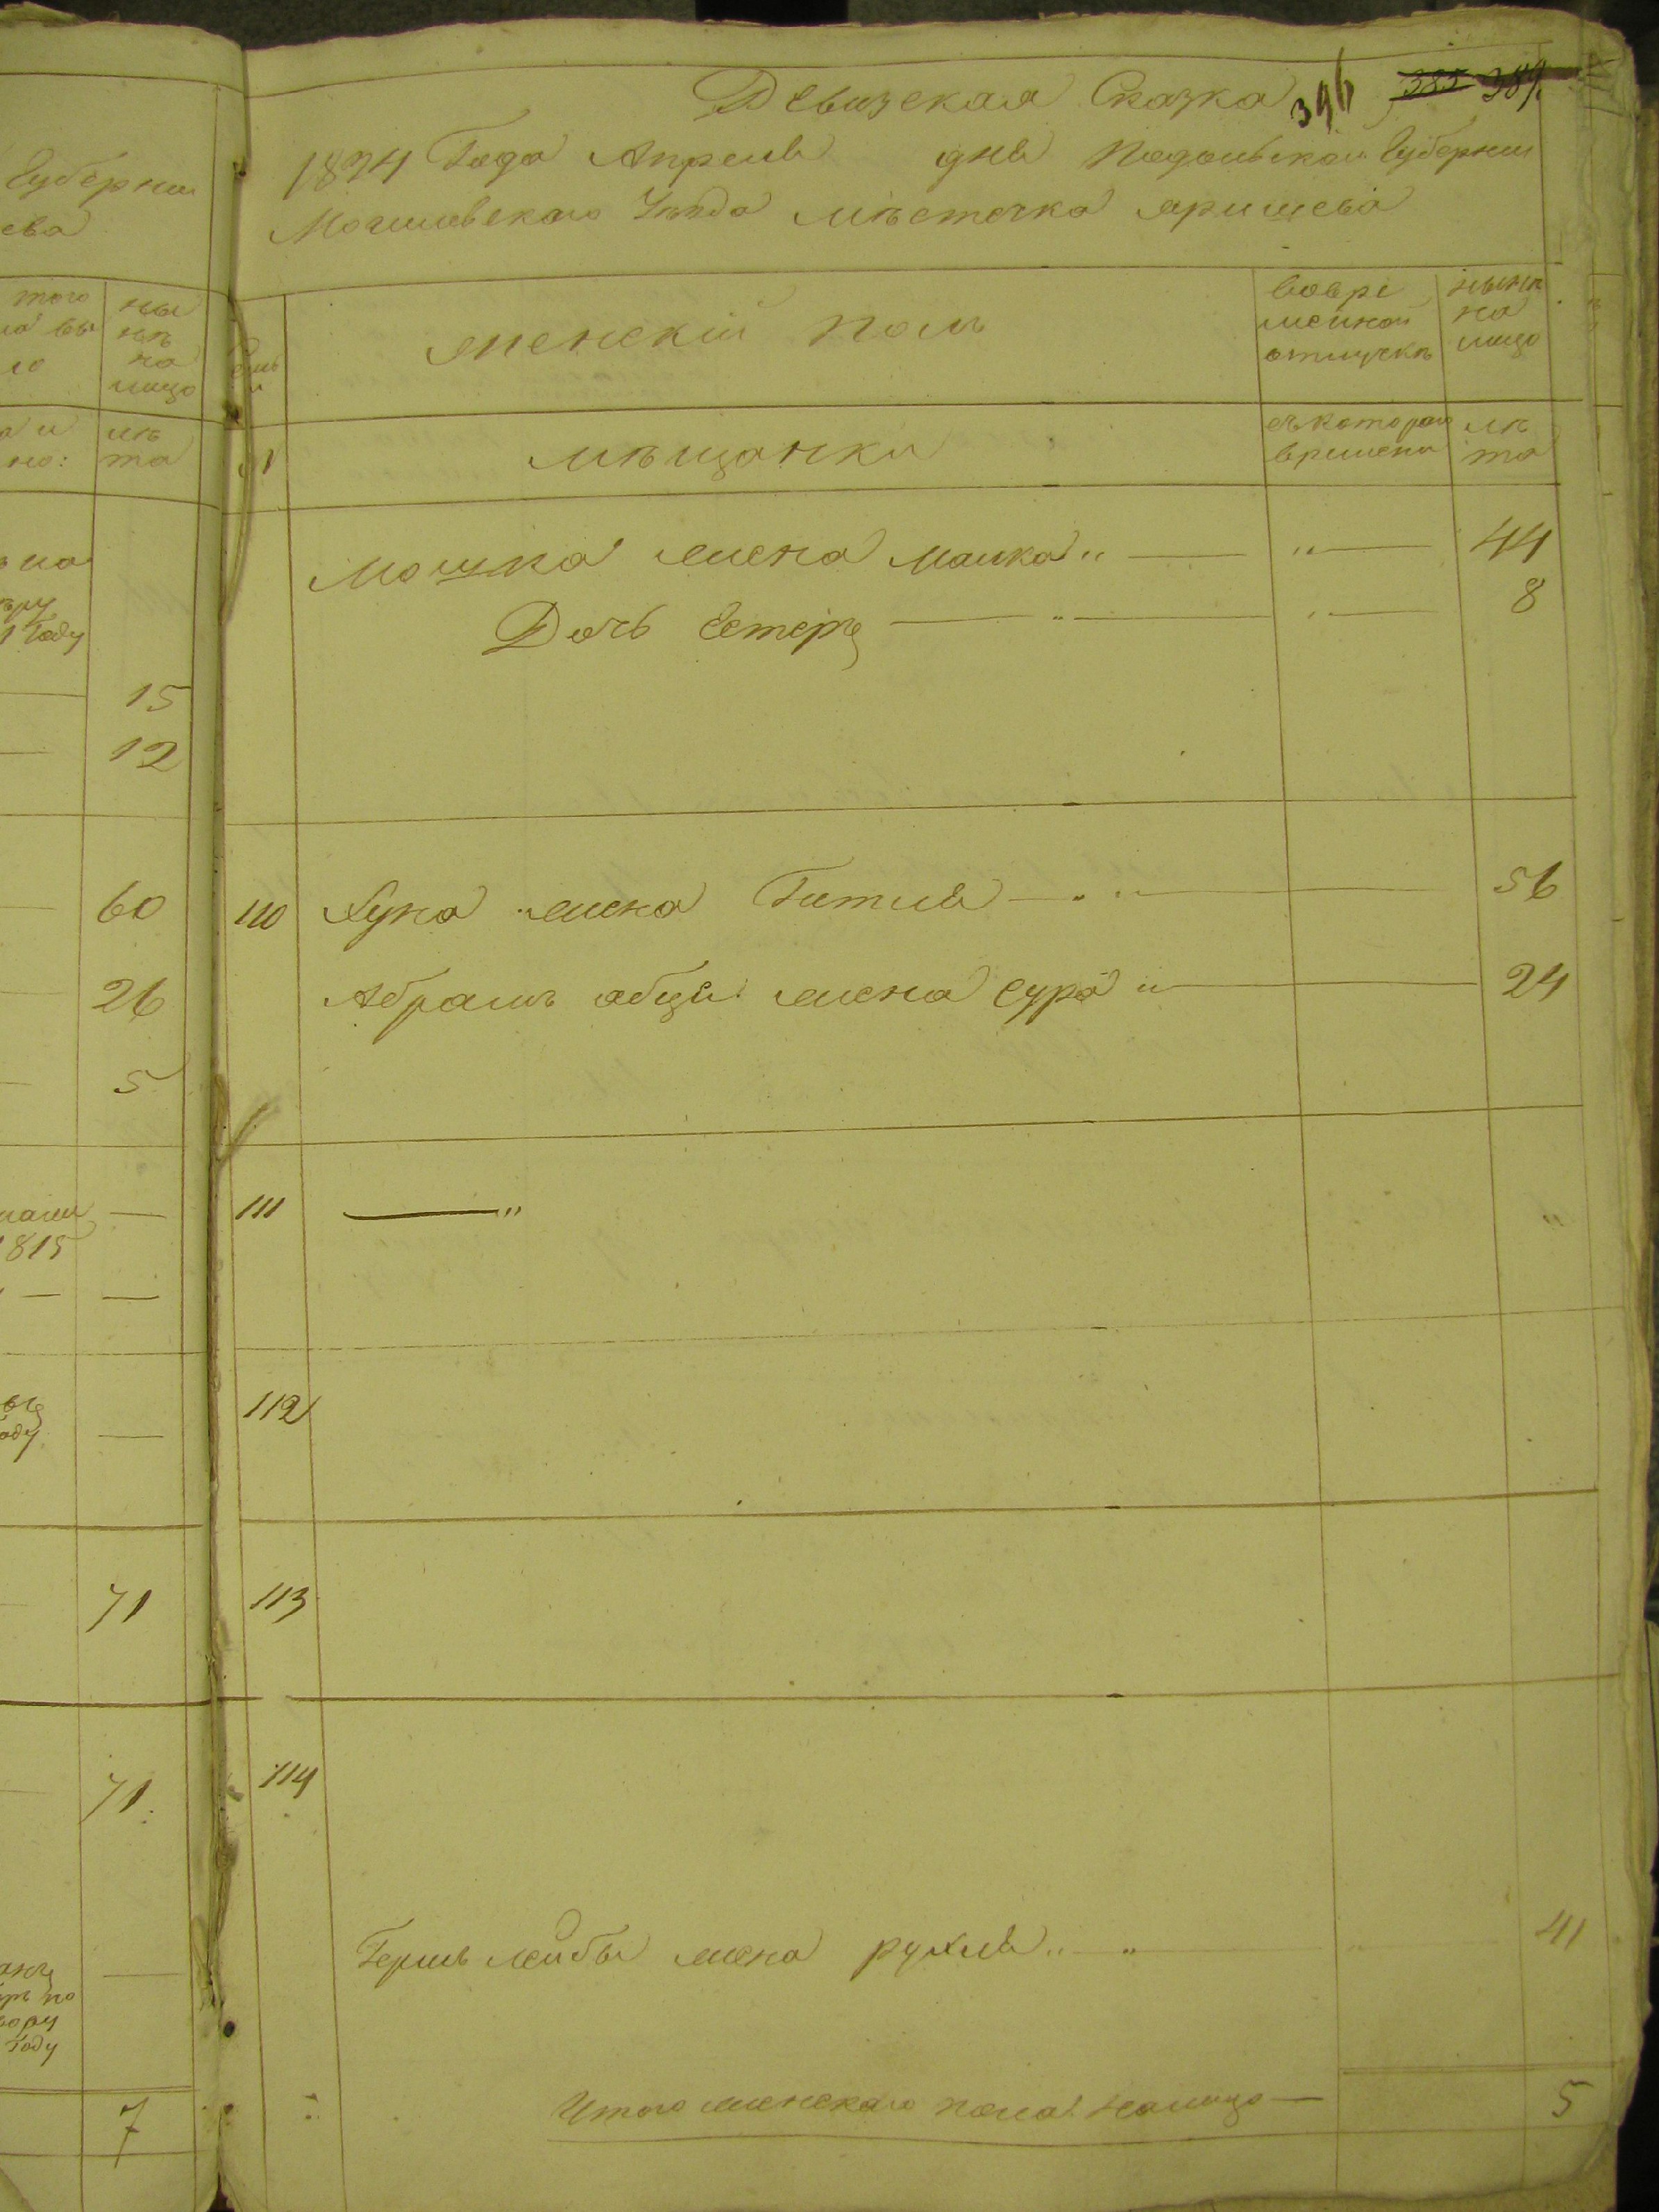 Ревизская Сказка 396 385 389
1834 Года Апреля дня Подольской Губернии
Могилевскаго Уѣзда мѣстечка Яришева
Женскій полъ
вовре
менной
отлучкѣ
нынѣ
на
лицо
Мѣщанки
съ котораго
времени
лѣ
та
Мошка жена Малка „ — „ — 44
Дочь Естеръ — „ — „ — 8
110 Хуна жена Гитля — „ — 56
Абрамъ абци жена Сура „ — 24
111 — „ „
112
113
114
Гершъ лейбы жена рухля „ — „ — 41
Итого женскаго пола налицо — 5
Губерніи
ева
того
вы
ло
ны
нѣ
на
лицо
и
но:
лѣ
та
Году
15
12
60
26
5
1815
оду
71
71
по
Году
7